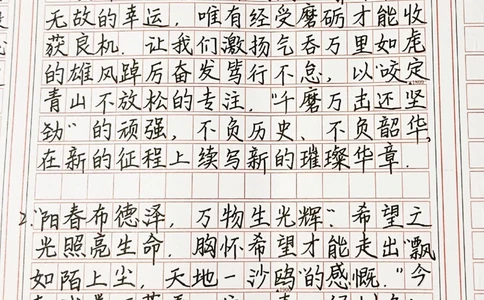 无故的幸运，唯有经受磨砺才能收
获良机。让我们激扬气吞万里如虎
的雄风踔厉奋发笃行不怠，以“咬定
青山不放松的专注，“千磨万击还坚
劲”的顽强，不负历史、不负韶华，
在新的征程上续写新的璀璨华章．
2.“阳春布德泽，万物生光辉”．希望之
光照亮生命．胸怀希望才能走出“飘
如陌上尘，天地一沙鸥”的感慨．“今